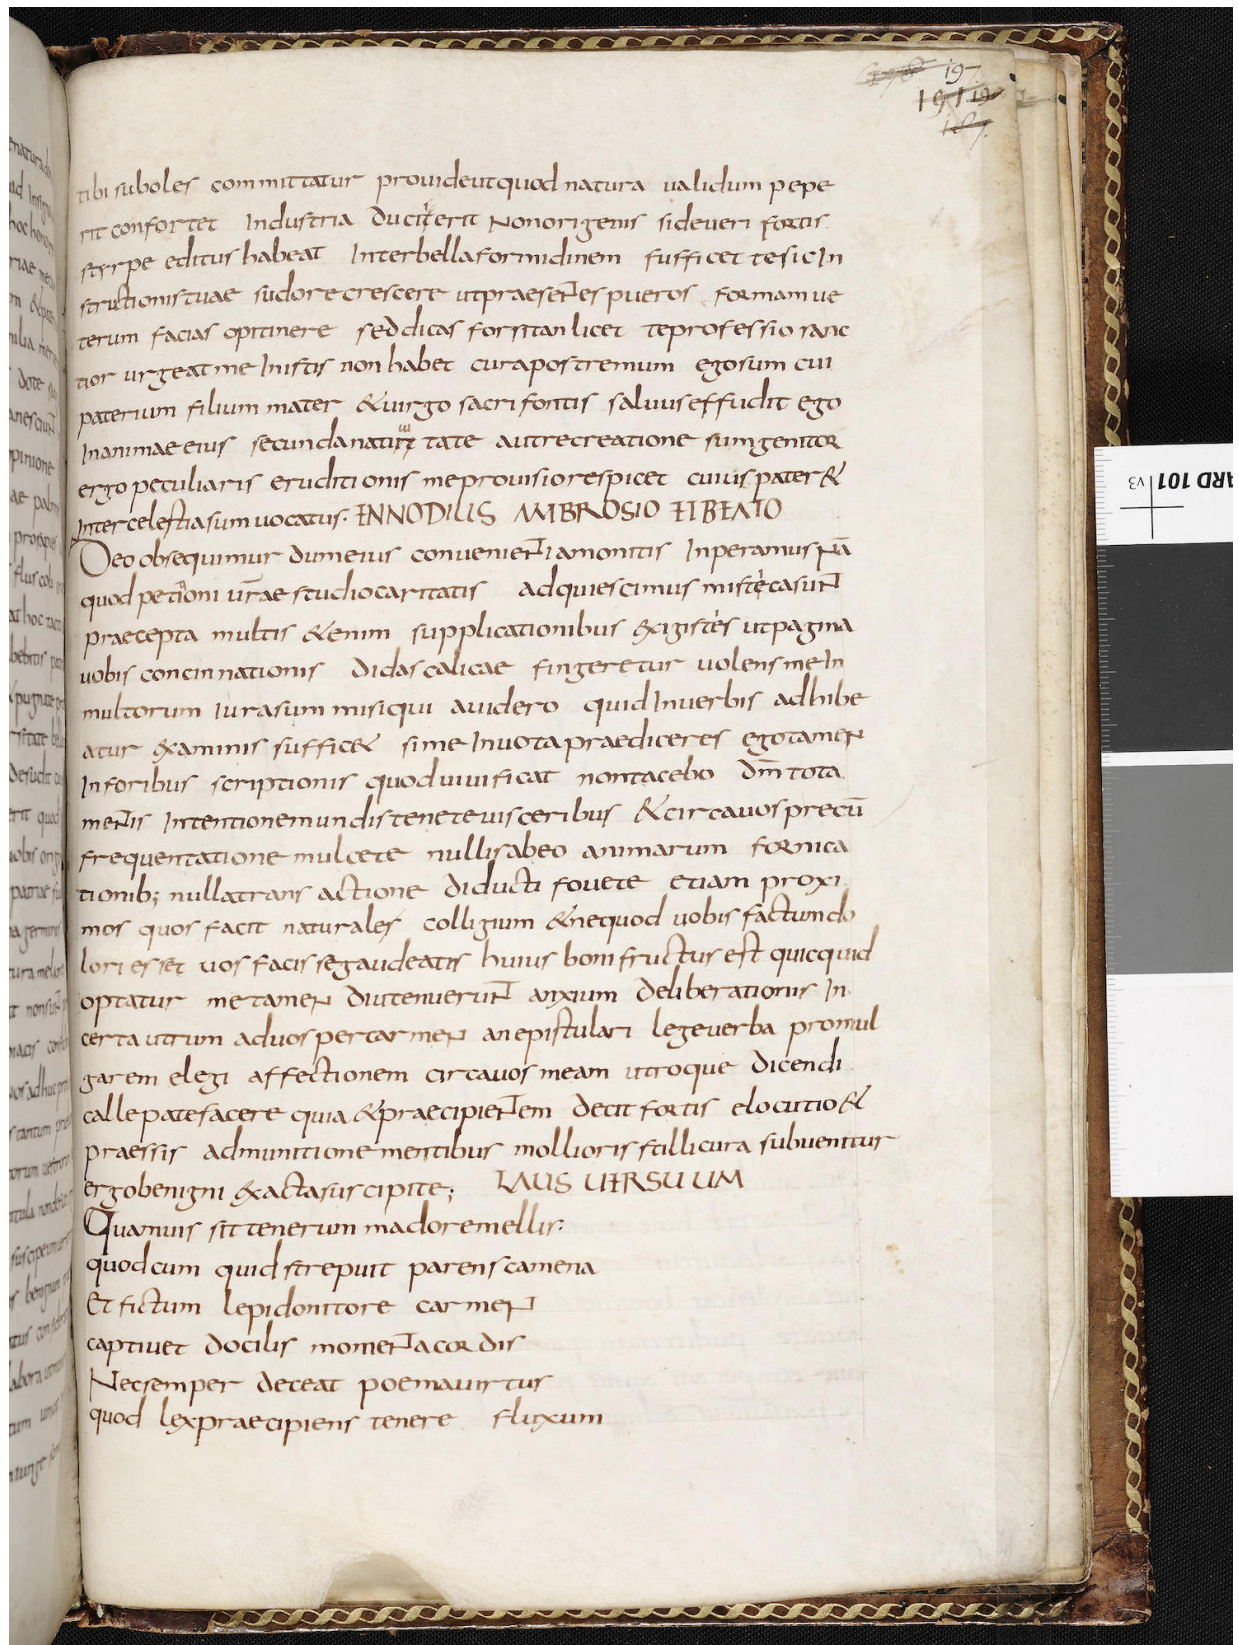 197
191
tibi suboles committatur provideut quod natura validum pepe
rit confortet Industria Duciter erit Non origenis sideveri fortis
styrpe editus habeat Inter bella formidinem sufficet te sic In
structionis tuae sudore crescere ut praesentes pueros formam ve
terum facias optinere sed dicas forsitan licet te professio sanc
tior urgeat me In istis non habet cura postremum ego sum cui
paterium filium mater & virgo sacri fontis salvus effudit ego
In animae eius secunda nativitate aut recreatione sum genitor
ergo peculiaris eruditionis me provisio respicet cuius pater &
Inter celestia sum vocatus· ENNODIUS AMBROSIO ET BEATO
Deo obsequimur dum eius convenientia monitis Inperamus Nā
quod petitioni vr̄ae studio caritatis adquiescimus misterē casunt
praecepta multis & enim supplicationibus exigistes ut pagina
vobis concinnationis Didascalicae fingeretur volens me In
multorum Iura summisi qui avidero quid In verbis adhibe
atur examinis suffic& si me In vota praediceres ego tamen
In foribus scriptionis quod vivificat non tacebo Dm̄ tota
mentis Intentione mundis tenete visceribus & circa vos precū
frequentatione mulcete nullis abeo animarum fornica
tionib; nulla transactione diducti fovete etiam proxi
mos quos facit naturales colligium & nequod vobis factum do
lori esset vos facis se gaudeatis huius boni fructus est quicquid
optatur me tamen Diu tenuerunt anxium Deliberationis In
certa utrum ad vos per carmen an epistulari lege verba promul
garem elegi affectionem circa vos meam utroque Dicendi
calle patefacere quia & praecipientem decit fortis elocutio &
praessis admunitione mentibus mollioris stilli cura subvenitur
ergo benigni exacta suscipite; LAUS VERSUUM
Quamvis sit tenerum madore mellis:
quodcum quid strepuit parens camena
Et fictum lepido nitore carmen
captivet Docilis momenta cordis
Nec semper deceat poema virtus
quod lex praecipiens tenere fluxum